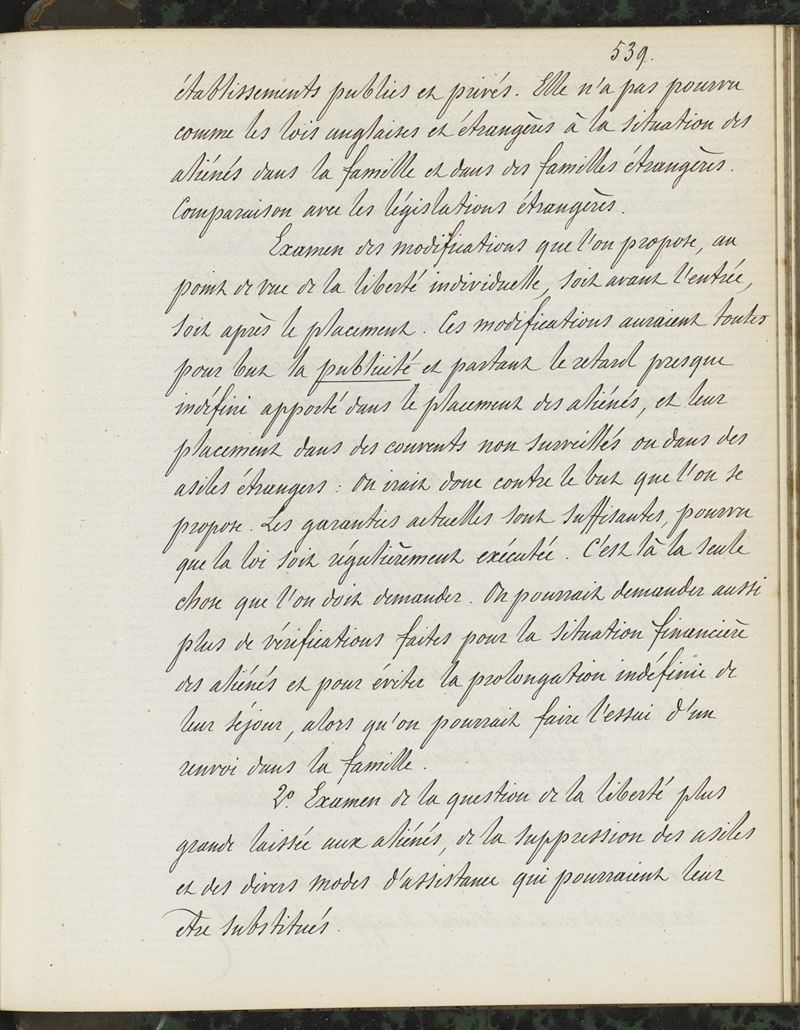 539.
établissements publics et privés. Elle n'a pas pourvu
comme les lois anglaises et étrangères à la situation des
aliénés dans la famille et dans des familles étrangères.
Comparaison avec les législations étrangères.
Examen des modifications que l'on propose, au
point de vue de la liberté individuelle, soit avant l'entrée,
soit après le placement. Ces modifications auraient toutes
pour but la publicité et partant le retard presque
indéfini apporté dans le placement des aliénés, et leur
placement dans des couvents non surveillés ou dans des
asiles étrangers : On irait donc contre le but que l'on se
propose. Les garanties actuelles sont suffisantes, pourvu
que la loi soit régulièrement exécutée. C'est là la seule
chose que l'on doit demander. On pourrait demander aussi
plus de vérifications faites pour la situation financière
des aliénés et pour éviter la prolongation indéfinie de
leur séjour, alors qu'on pourrait faire l'essai d'un
renvoi dans la famille.
2º. Examen de la question de la liberté plus
grande laissée aux aliénés, de la suppression des asiles
et des divers modes d'assistance qui pourraient leur
être substitués.